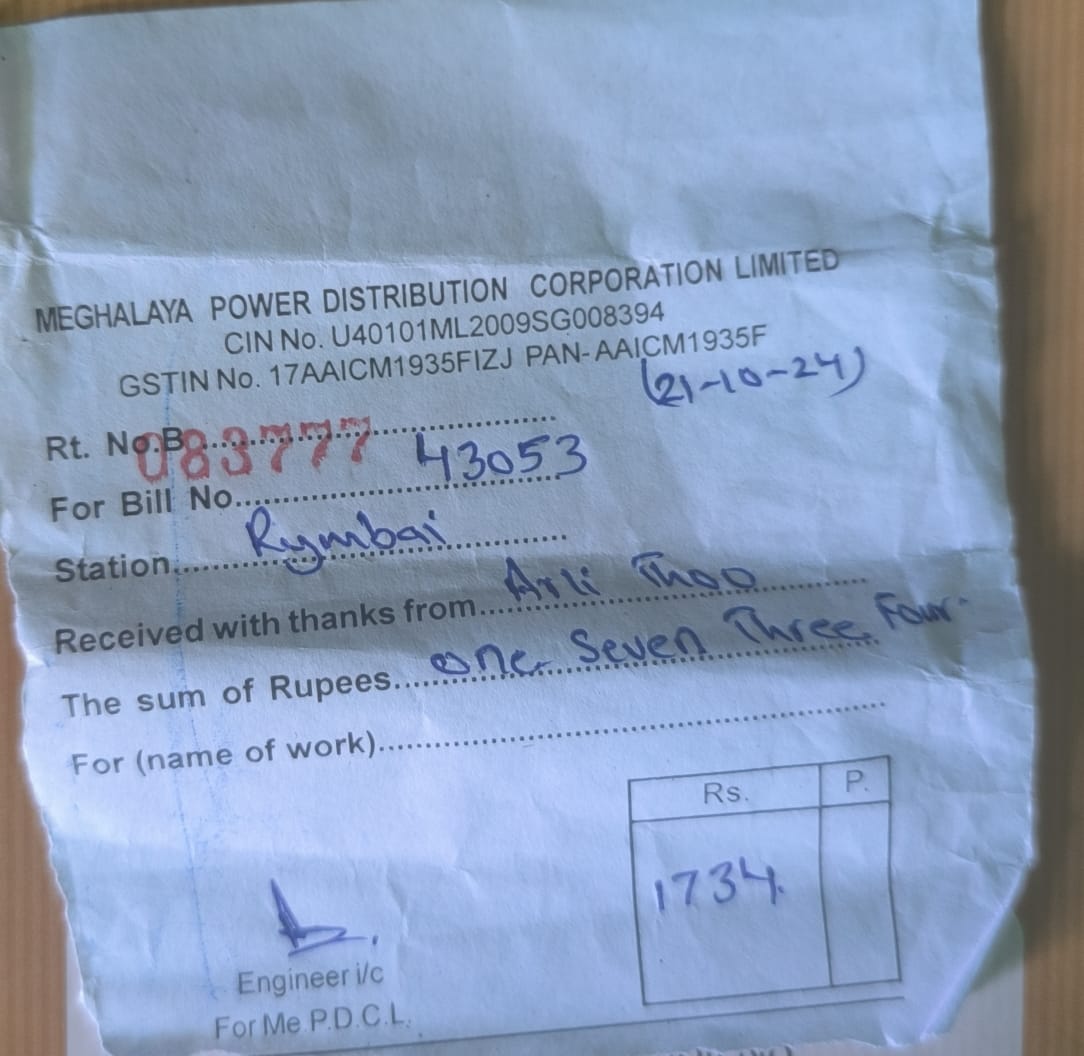 MEGHALAYA POWER DISTRIBUTION CORPORATION LIMITED
CIN No. U40101ML2009SG008394
GSTIN No. 17AAICM1935FIZJ PAN- AAICM1935F
(21-10-24)
Rt. No.B 083777
For Bill No. 43053
Station Rymbai
Received with thanks from Arli Thoo
The sum of Rupees one Seven Three Four
For (name of work)
Rs. P.
1734
Engineer i/c
For Me.P.D.C.L.